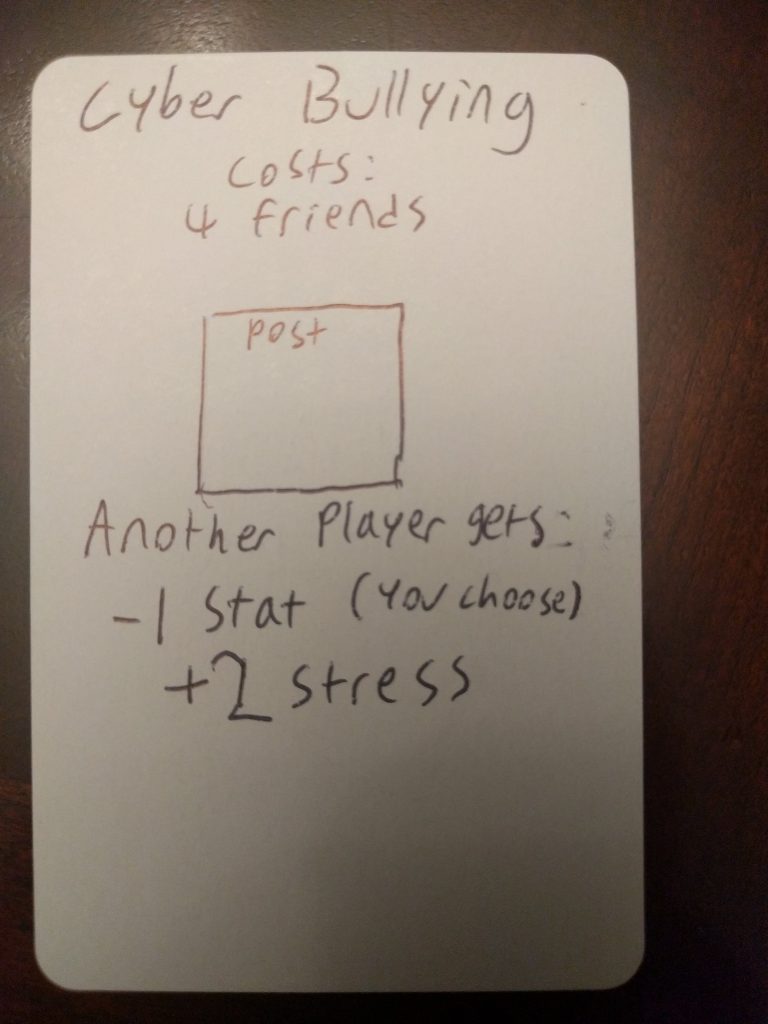 Cyber Bullying
Costs:
4 friends
post
Another Player gets:
-1 Stat (You choose)
+2 stress